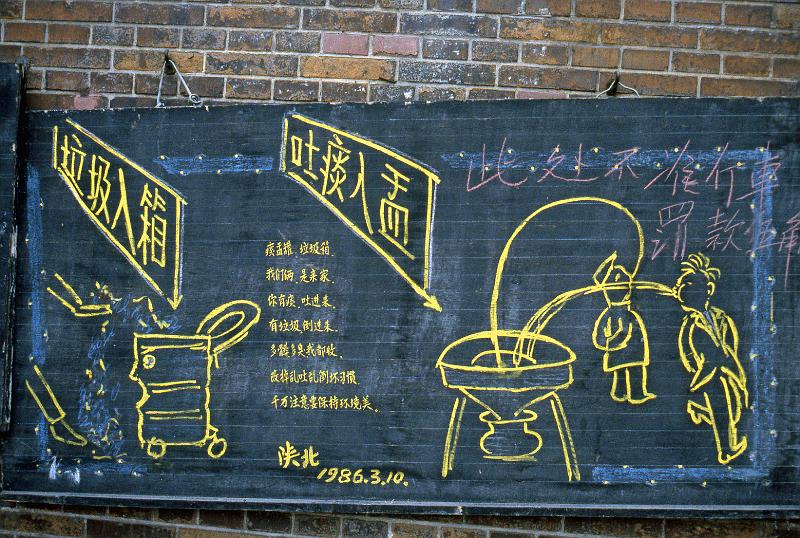 垃圾入箱
吐痰入盂
此处不准行車
罚款伍角
痰盂罐、垃圾箱、
我们俩、是亲家、
你有痰、吐进来、
有垃圾、倒进来、
多髒多臭我都收、
改掉乱吐乱倒坏习惯
千万注意要保持环境美。
陕北
1986.3.10.